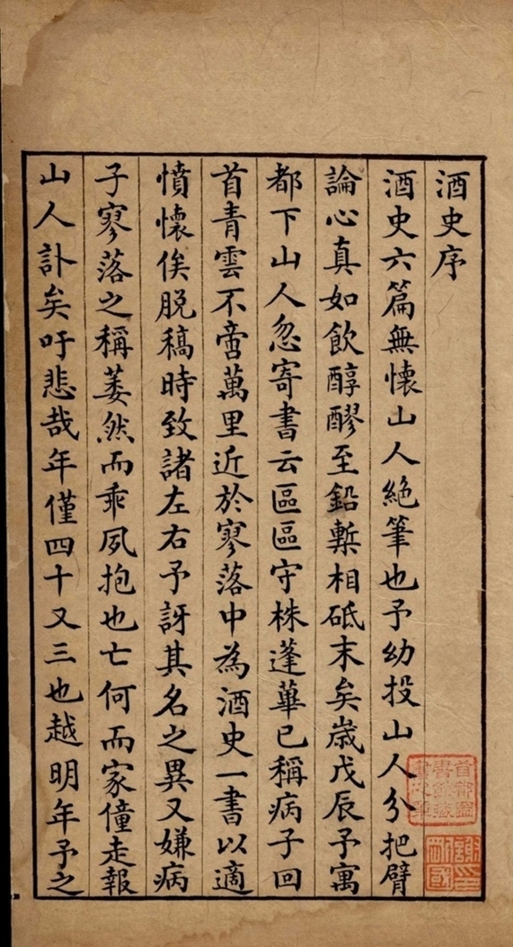 酒史序
酒史六篇無懷山人絕筆也予幼投山人分把臂
論心真如飲醇醪至鉛槧相砥末矣歲戊辰予寓
都下山人忽寄書云區區守株蓬蓽已稱病子回
首青雲不啻萬里近於寥落中為酒史一書以適
憤懷俟脫稿時致諸左右予訝其名之異又嫌病
子寥落之稱萎然而乖夙抱也亡何而家僮走報
山人訃矣吁悲哉年僅四十又三也越明年予之